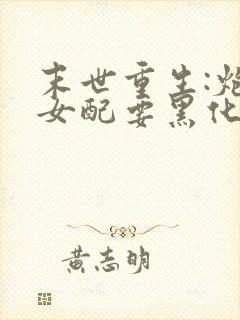 末世重生:炮
女配要黑化
黄志明